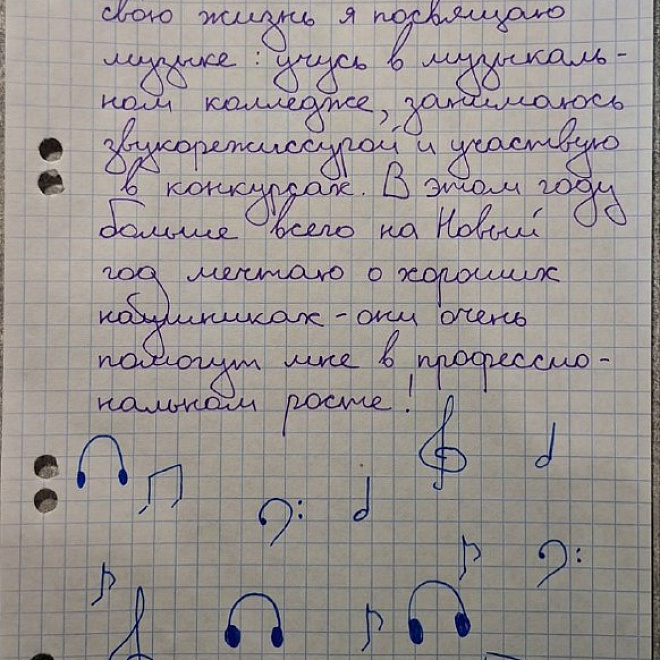 свою жизнь я посвящаю
музыке: учусь в музыкаль-
ном колледже, занимаюсь
звукорежиссурой и участвую
в конкурсах. В этом году
больше всего на Новый
год мечтаю о хороших
наушниках - они очень
помогут мне в профессио-
нальном росте!